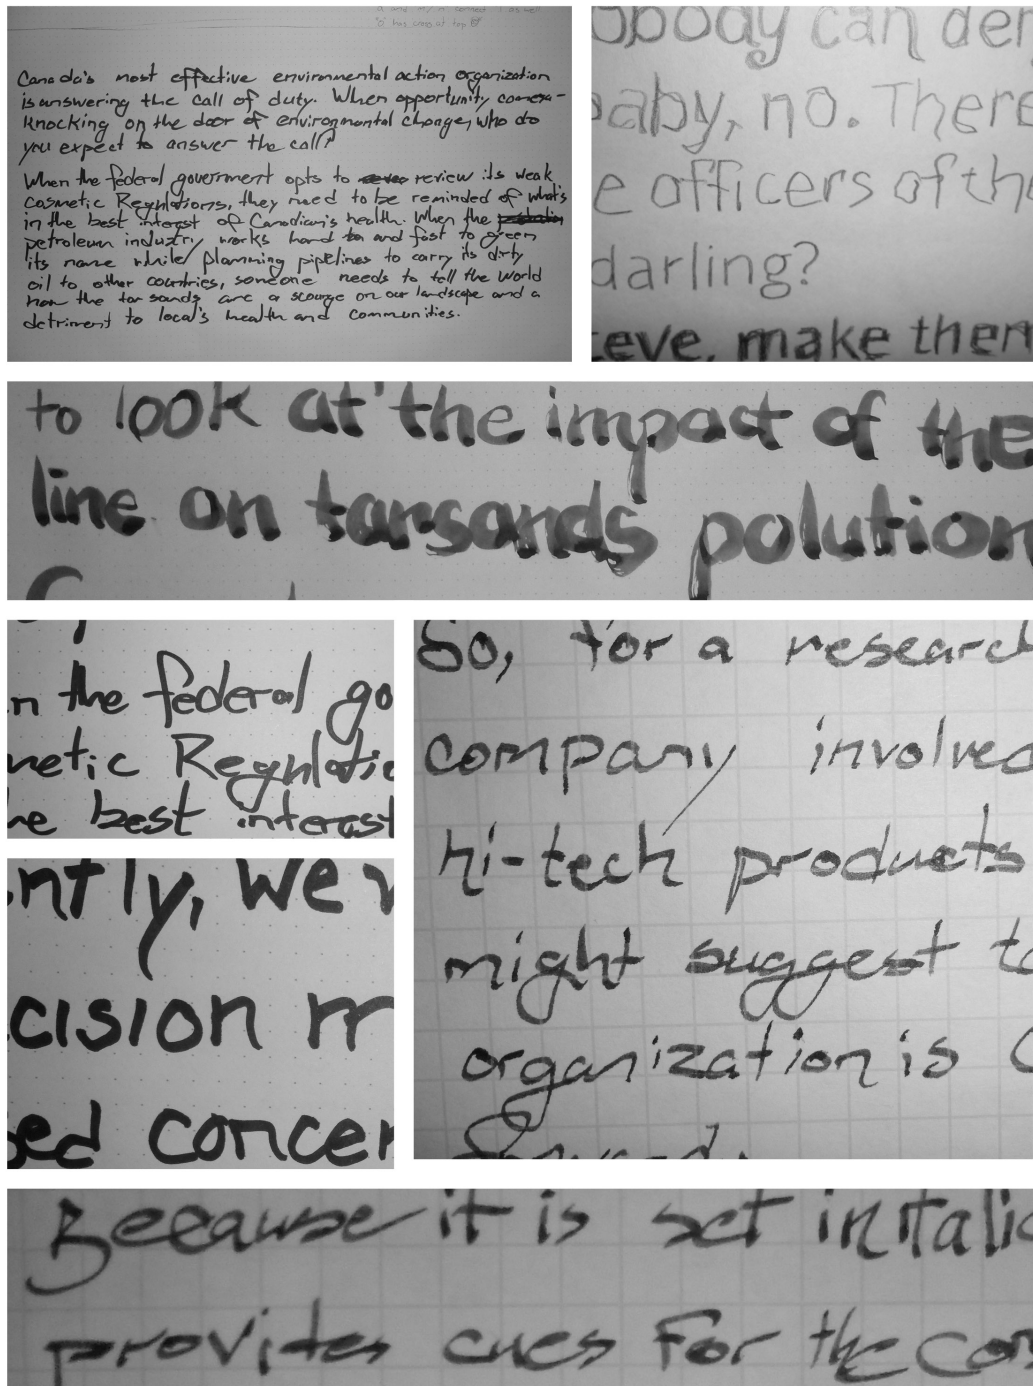 'o' has cross at top
Canada's most effective environmental action organization
is answering the call of duty. When opportunity comes a-
knocking on the door of environmental change, who do
you expect to answer the call?
When the federal government opts to review its weak
Cosmetic Regulations, they need to be reminded of what's
in the best interest of Canadian's health. When the
petroleum industry works hard and fast to green
its name while planning pipelines to carry its dirty
oil to other countries, someone needs to tell the world
how the tar sands are a scourge on our landscape and a
detriment to local's health and communities.
obody can den
baby, no. There
e officers of the
darling?
teve, make them
to look at the impact of the
line on tarsands polution
n the federal go
metic Regulatio
he best interest
ntly, we
cision m
sed concer
So, for a research
company involved
hi-tech products
might suggest
organization is
Forward.
Because it is set in italic
provides cues for the con